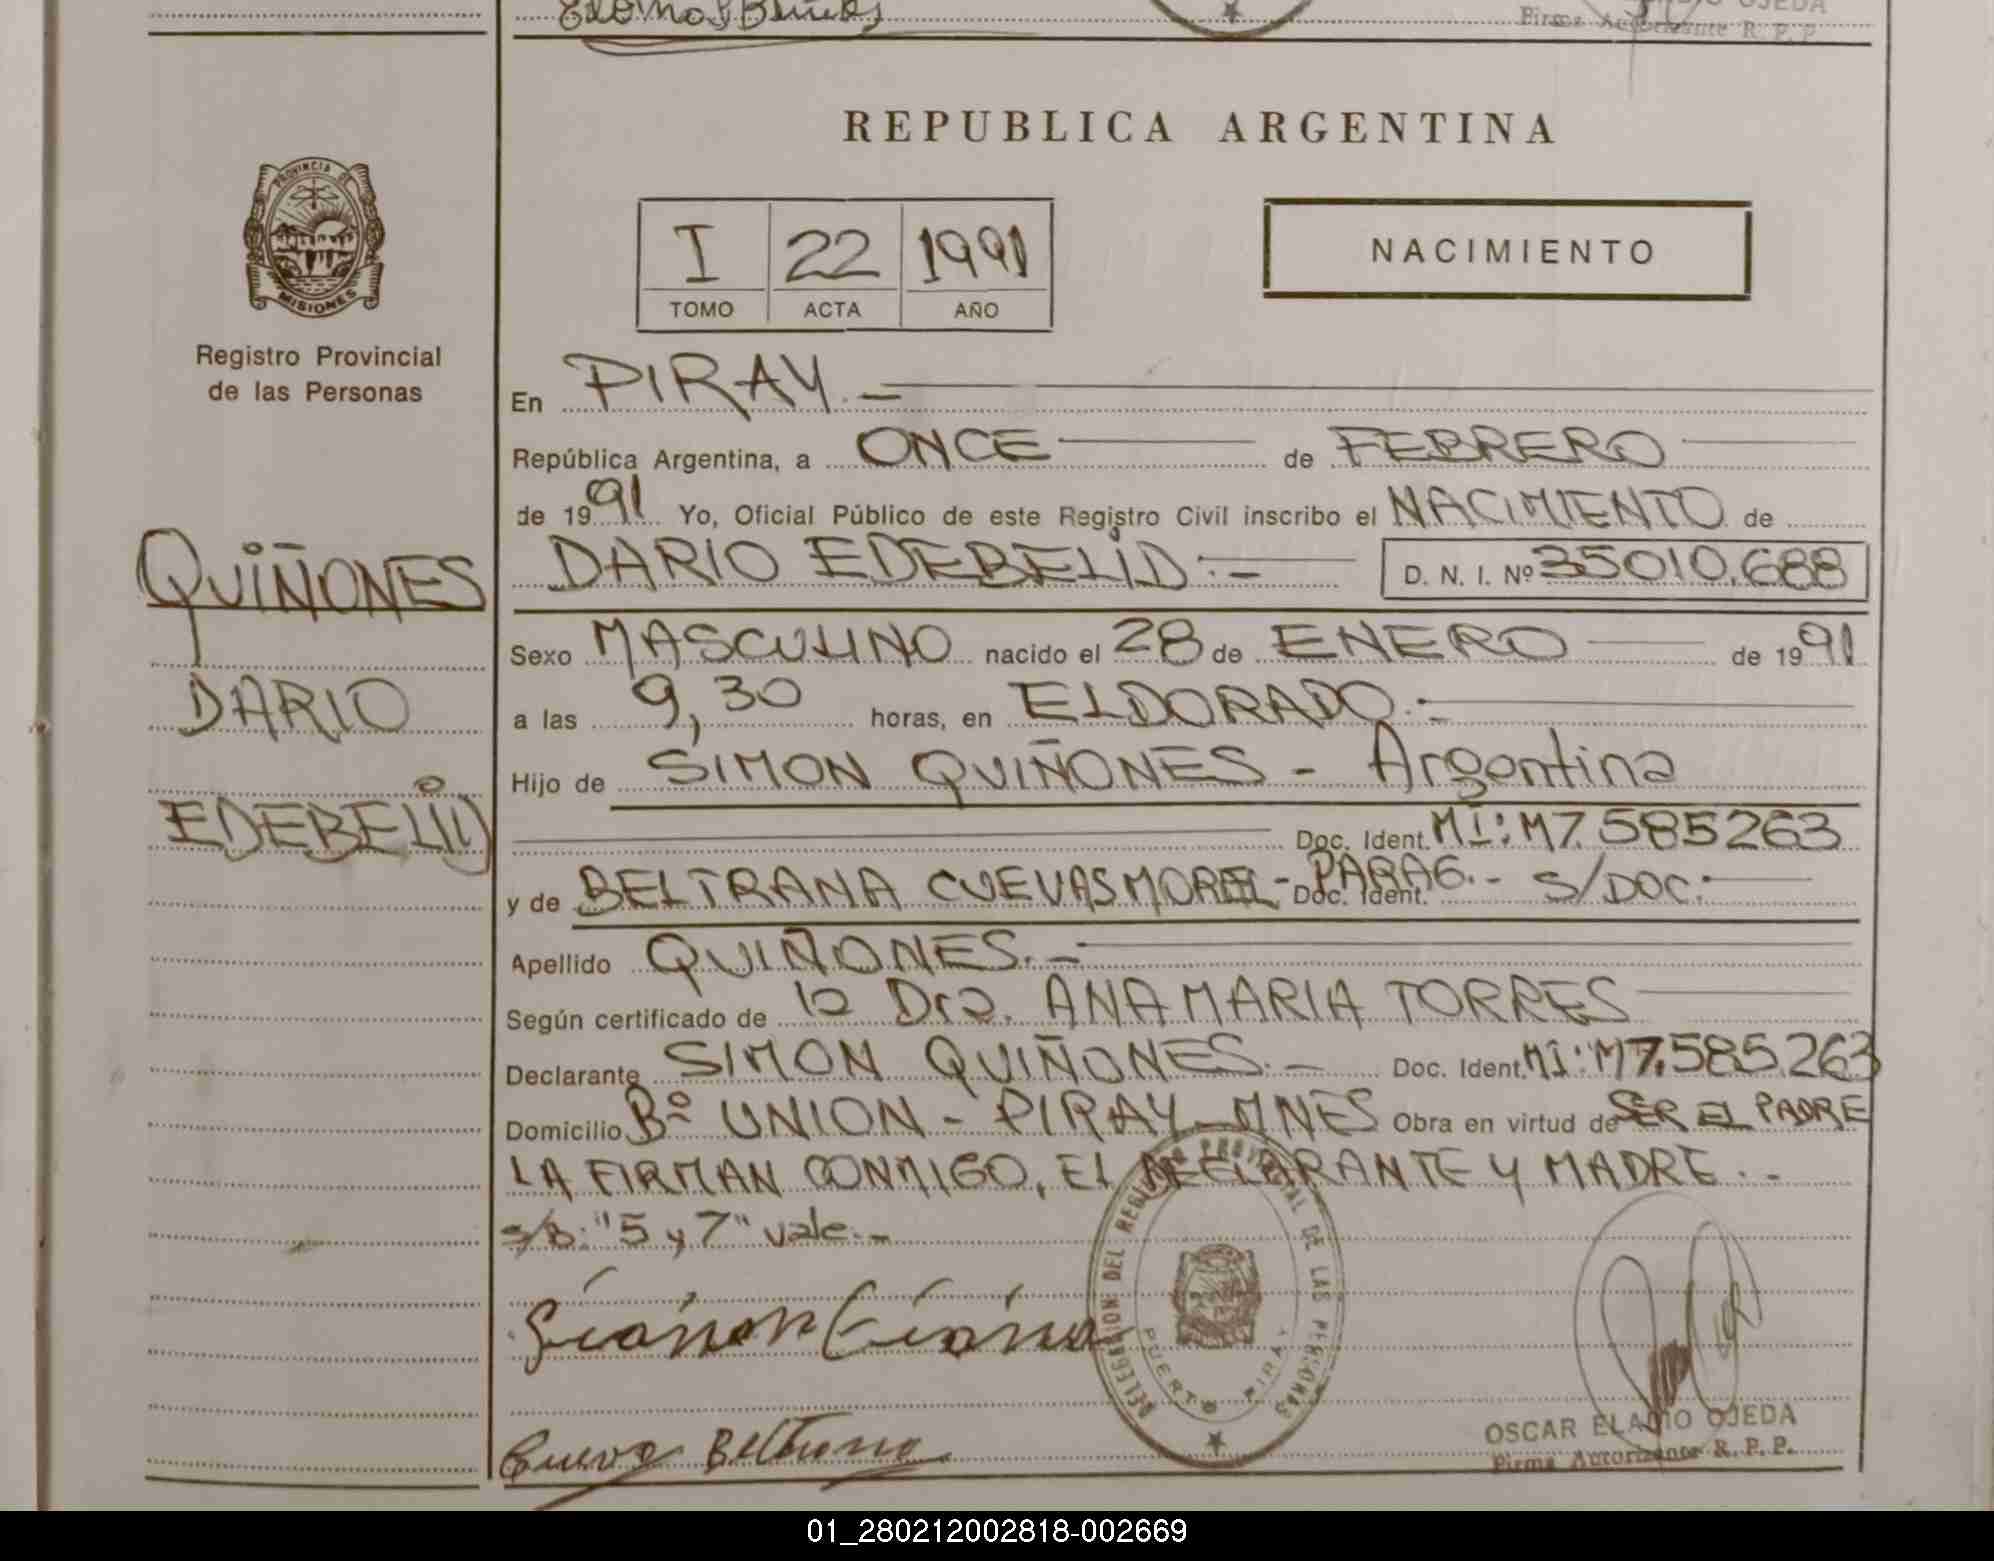 Firma Autorizante R. P. P.
PROVINCIA DE
MISIONES
Registro Provincial
de las Personas
QUIÑONES
DARIO
EDEBELID
REPUBLICA ARGENTINA
I 22 1991
TOMO ACTA AÑO
NACIMIENTO
En PIRAY.—
República Argentina, a ONCE de FEBRERO
de 1991 Yo, Oficial Público de este Registro Civil inscribo el NACIMIENTO de
DARIO EDEBELID.— D. N. I. Nº 35010.688
Sexo MASCULINO nacido el 28 de ENERO de 1991
a las 9,30 horas, en ELDORADO.-
Hijo de SIMON QUIÑONES - Argentina
Doc. Ident. MI: M7.585263
y de BELTRANA CUEVAS MOREL - PARAG.- Doc. Ident. S/DOC.
Apellido QUIÑONES.—
Según certificado de la Dra. ANA MARIA TORRES
Declarante SIMON QUIÑONES.— Doc. Ident. MI: M7.585.263
Domicilio Bº UNION - PIRAY - MNES Obra en virtud de SER EL PADRE
LA FIRMAN CONMIGO, EL DECLARANTE Y MADRE.-
s/B: "5 y 7" vale.-
DELEGACION DEL REGISTRO PROVINCIAL DE LAS PERSONAS
PUERTO PIRAY
Cueva Beltrana
OSCAR ELADIO OJEDA
Firma Autorizante R. P. P.
01_280212002818-002669